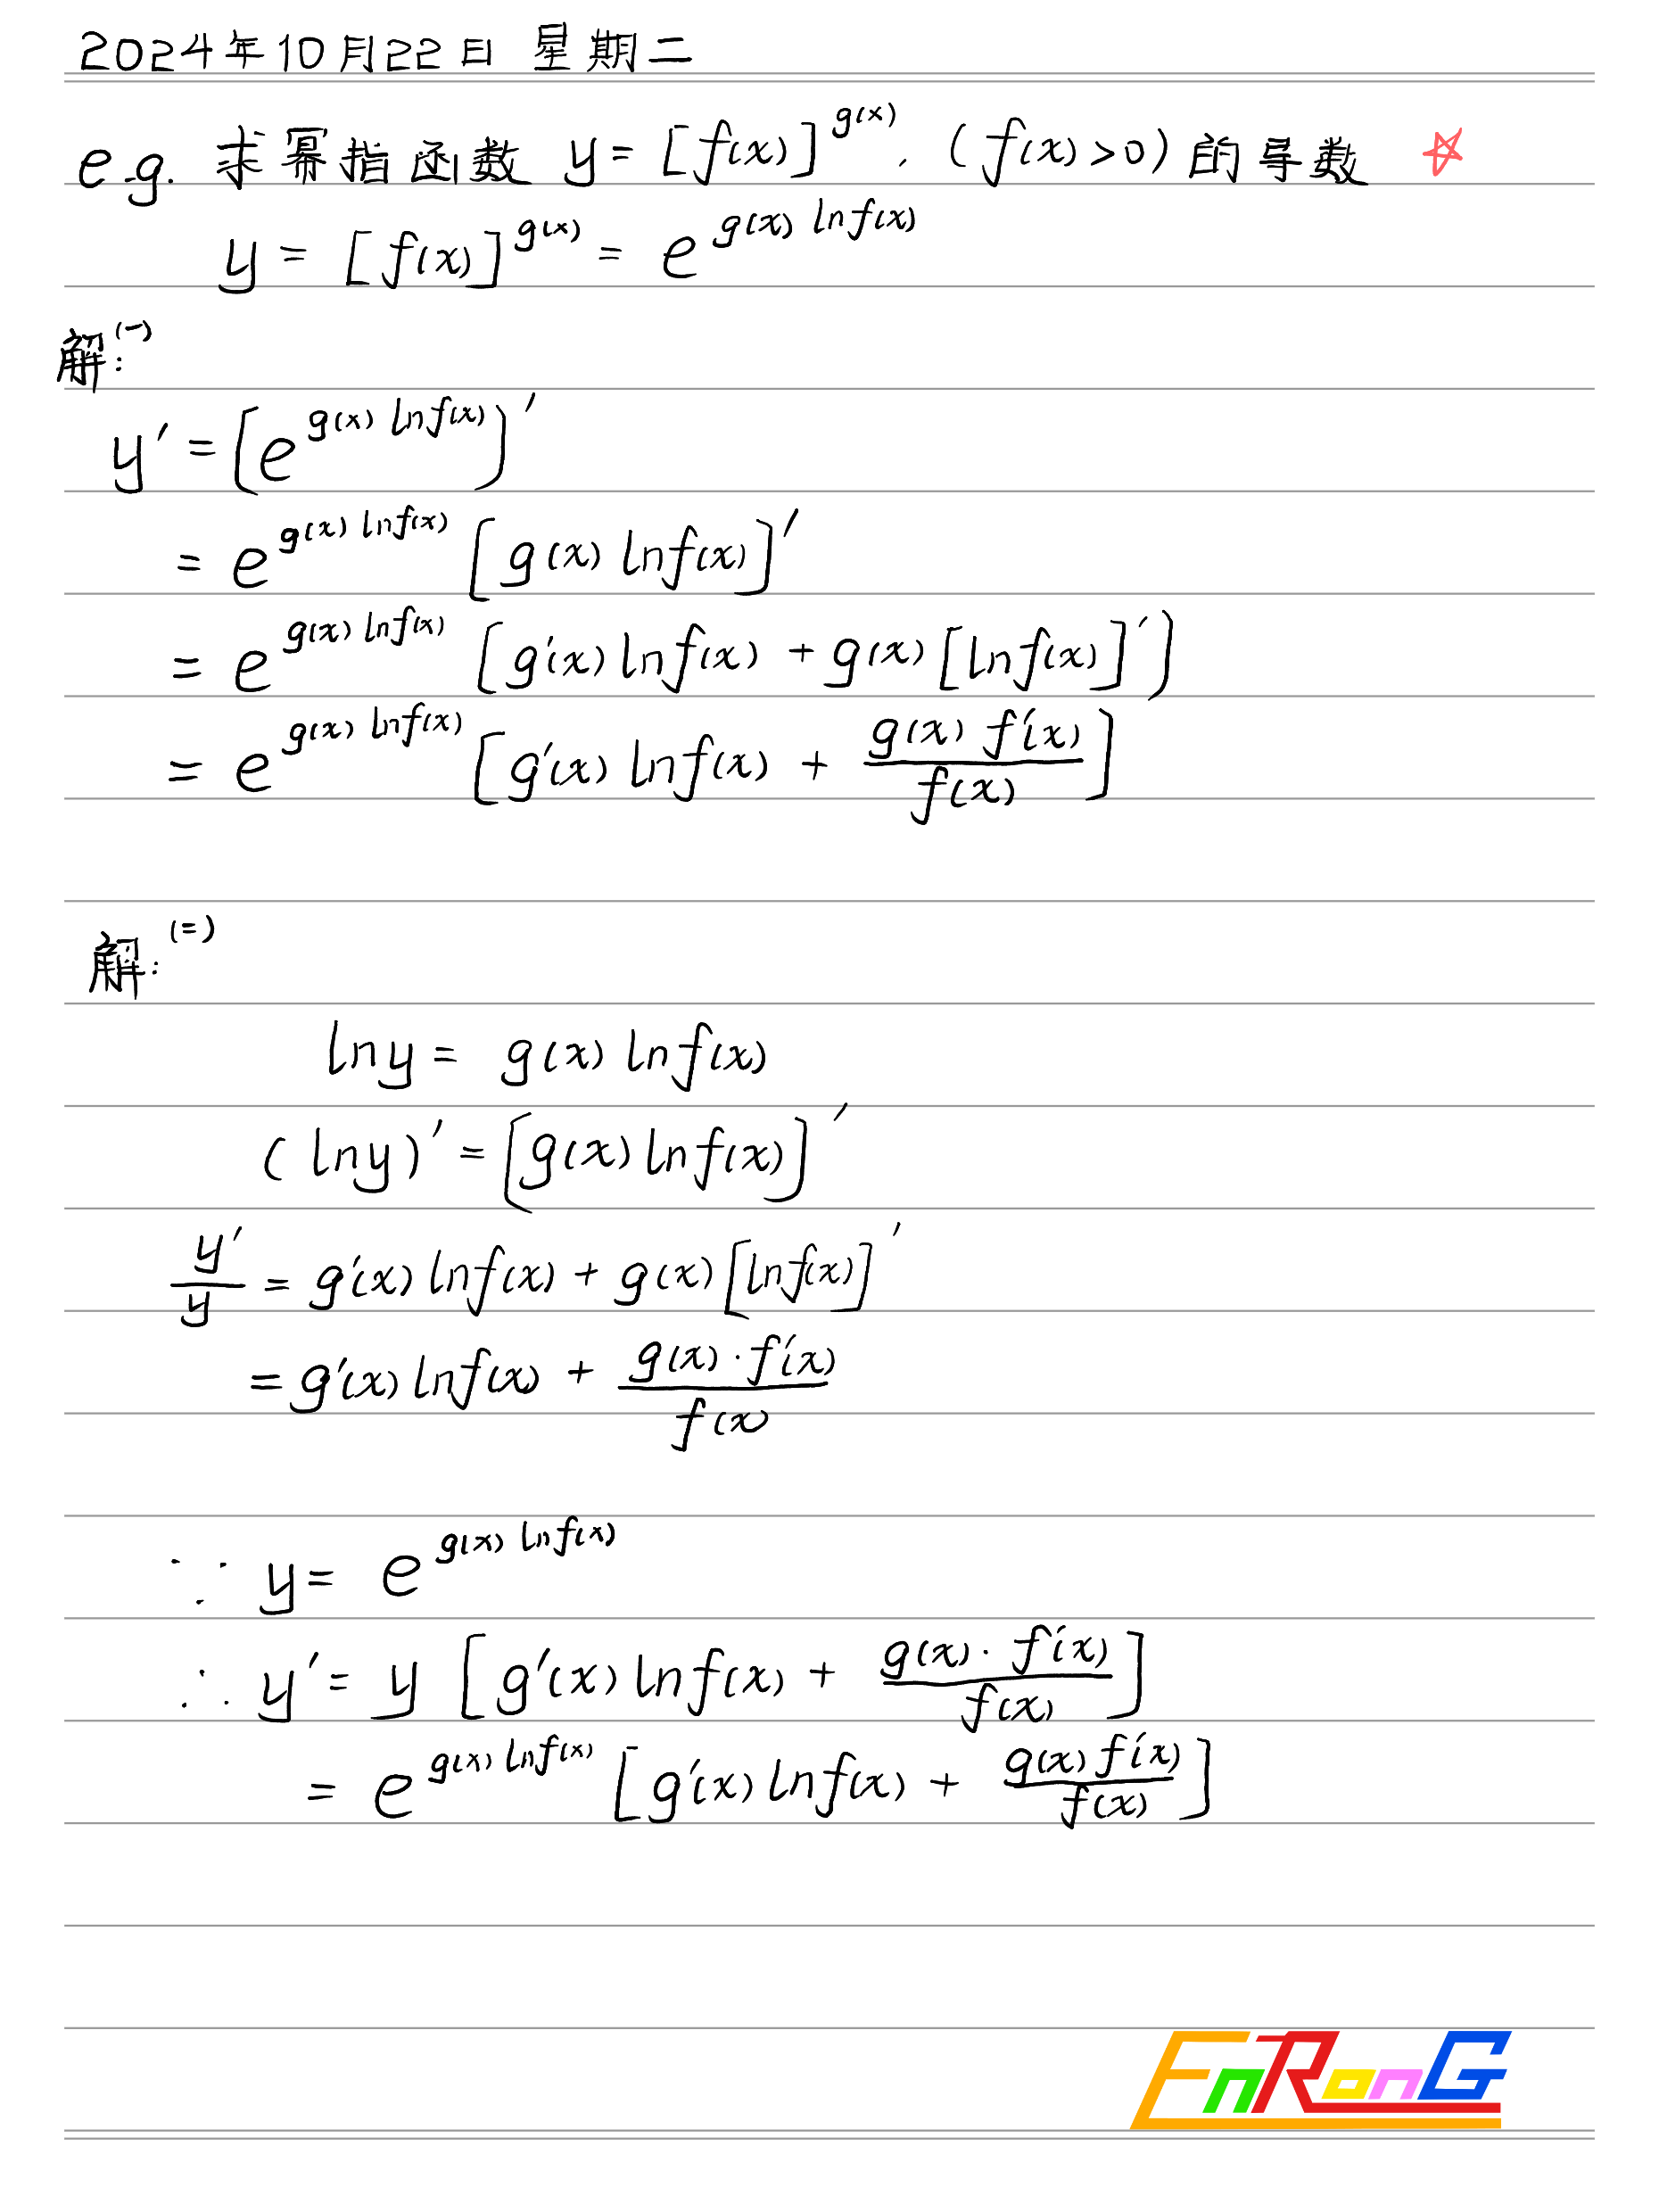 2024年10月22日 星期二
e.g. 求幂指函数 y = [f(x)]^{g(x)}, (f(x)>0) 的导数 ☆
y = [f(x)]^{g(x)} = e^{g(x) ln f(x)}
解(一):
y' = [e^{g(x) ln f(x)}]'
= e^{g(x) ln f(x)} [g(x) ln f(x)]'
= e^{g(x) ln f(x)} [g'(x) ln f(x) + g(x) [ln f(x)]']
= e^{g(x) ln f(x)} [g'(x) ln f(x) + \frac{g(x) f'(x)}{f(x)}]
解(二):
ln y = g(x) ln f(x)
(ln y)' = [g(x) ln f(x)]'
\frac{y'}{y} = g'(x) ln f(x) + g(x) [ln f(x)]'
= g'(x) ln f(x) + \frac{g(x) · f'(x)}{f(x)}
∵ y = e^{g(x) ln f(x)}
∴ y' = y [g'(x) ln f(x) + \frac{g(x) · f'(x)}{f(x)}]
= e^{g(x) ln f(x)} [g'(x) ln f(x) + \frac{g(x) f'(x)}{f(x)}]
EnRonG